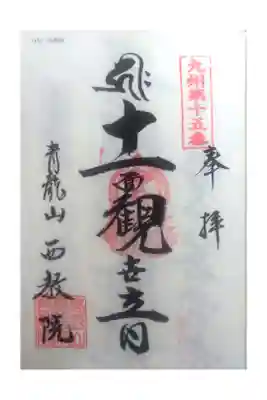 九州第十五番
奉拝
十一面觀世音
青龍山 西教院